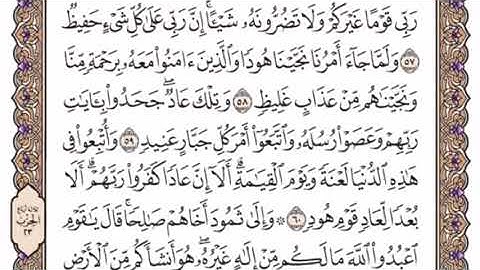 رَبِّي قَوْمًا غَيْرَكُمْ وَلَا تَضُرُّونَهُۥ شَيْـًٔا ۚ إِنَّ رَبِّي عَلَىٰ كُلِّ شَيْءٍ حَفِيظٌ
﴿٥٧﴾ وَلَمَّا جَآءَ أَمْرُنَا نَجَّيْنَا هُودًا وَٱلَّذِينَ ءَامَنُوا۟ مَعَهُۥ بِرَحْمَةٍ مِّنَّا
وَنَجَّيْنَٰهُم مِّنْ عَذَابٍ غَلِيظٍ ﴿٥٨﴾ وَتِلْكَ عَادٌ ۖ جَحَدُوا۟ بِـَٔايَٰتِ
رَبِّهِمْ وَعَصَوْا۟ رُسُلَهُۥ وَٱتَّبَعُوٓا۟ أَمْرَ كُلِّ جَبَّارٍ عَنِيدٍ ﴿٥٩﴾ وَأُتْبِعُوا۟ فِي
هَٰذِهِ ٱلدُّنْيَا لَعْنَةً وَيَوْمَ ٱلْقِيَٰمَةِ ۗ أَلَآ إِنَّ عَادًا كَفَرُوا۟ رَبَّهُمْ ۗ أَلَا
بُعْدًا لِّعَادٍ قَوْمِ هُودٍ ﴿٦٠﴾ ۞ وَإِلَىٰ ثَمُودَ أَخَاهُمْ صَٰلِحًا ۚ قَالَ يَٰقَوْمِ
ٱعْبُدُوا۟ ٱللَّهَ مَا لَكُم مِّنْ إِلَٰهٍ غَيْرُهُۥ ۖ هُوَ أَنشَأَكُم مِّنَ ٱلْأَرْضِ
الحزب
٢٣